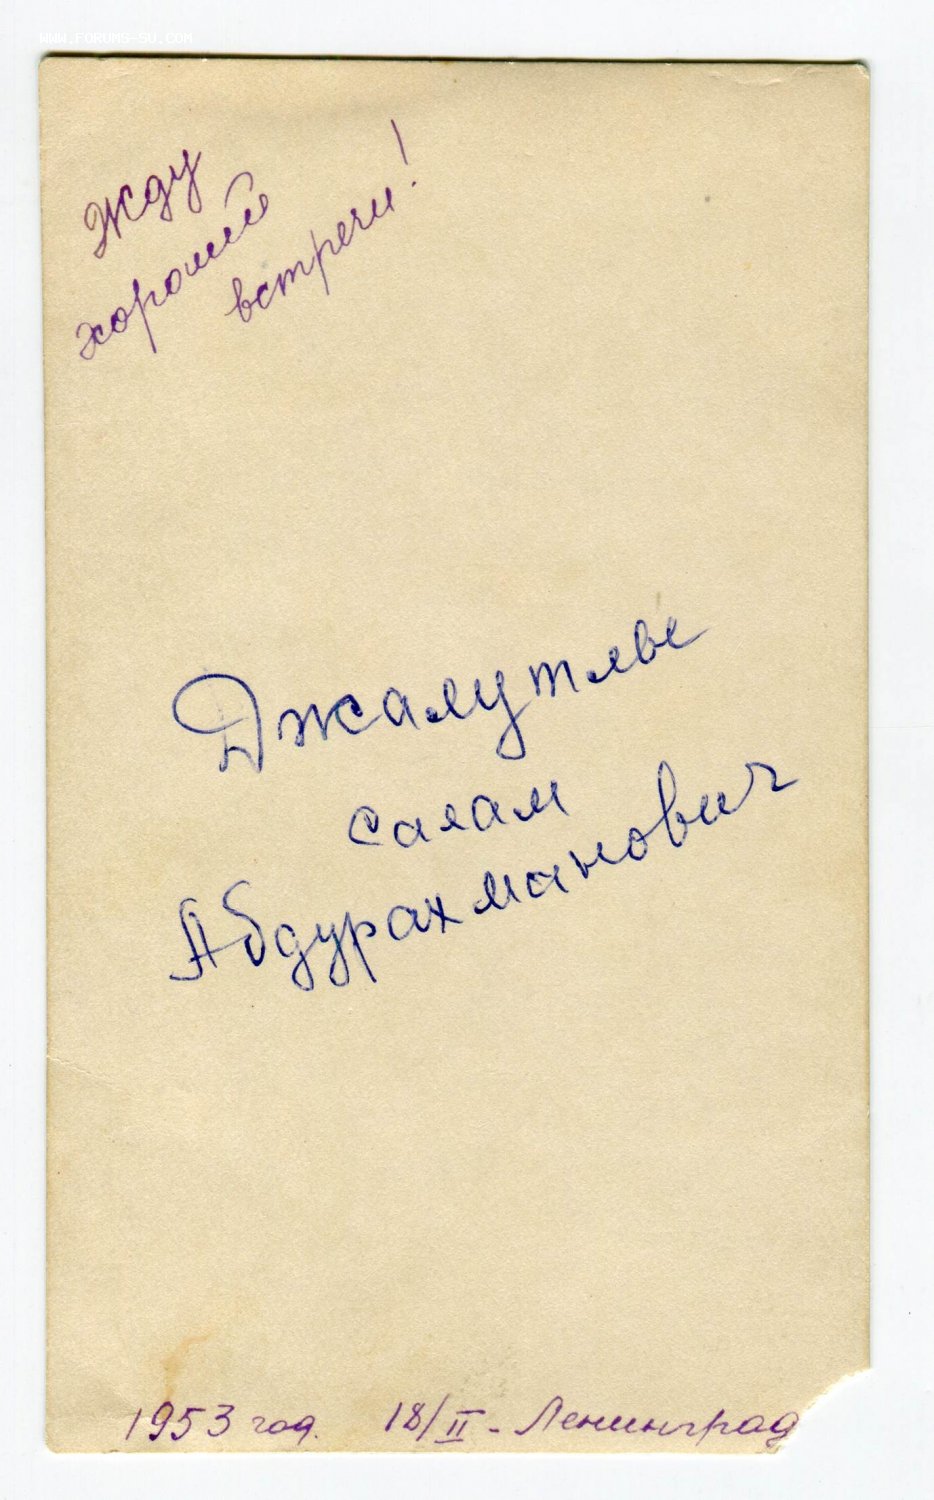 WWW.FORUMS-SU.COM
Жду
хорошей
встречи!
Джалутлве
салам
Абдурахманович
1953 год. 18/II - Ленинград